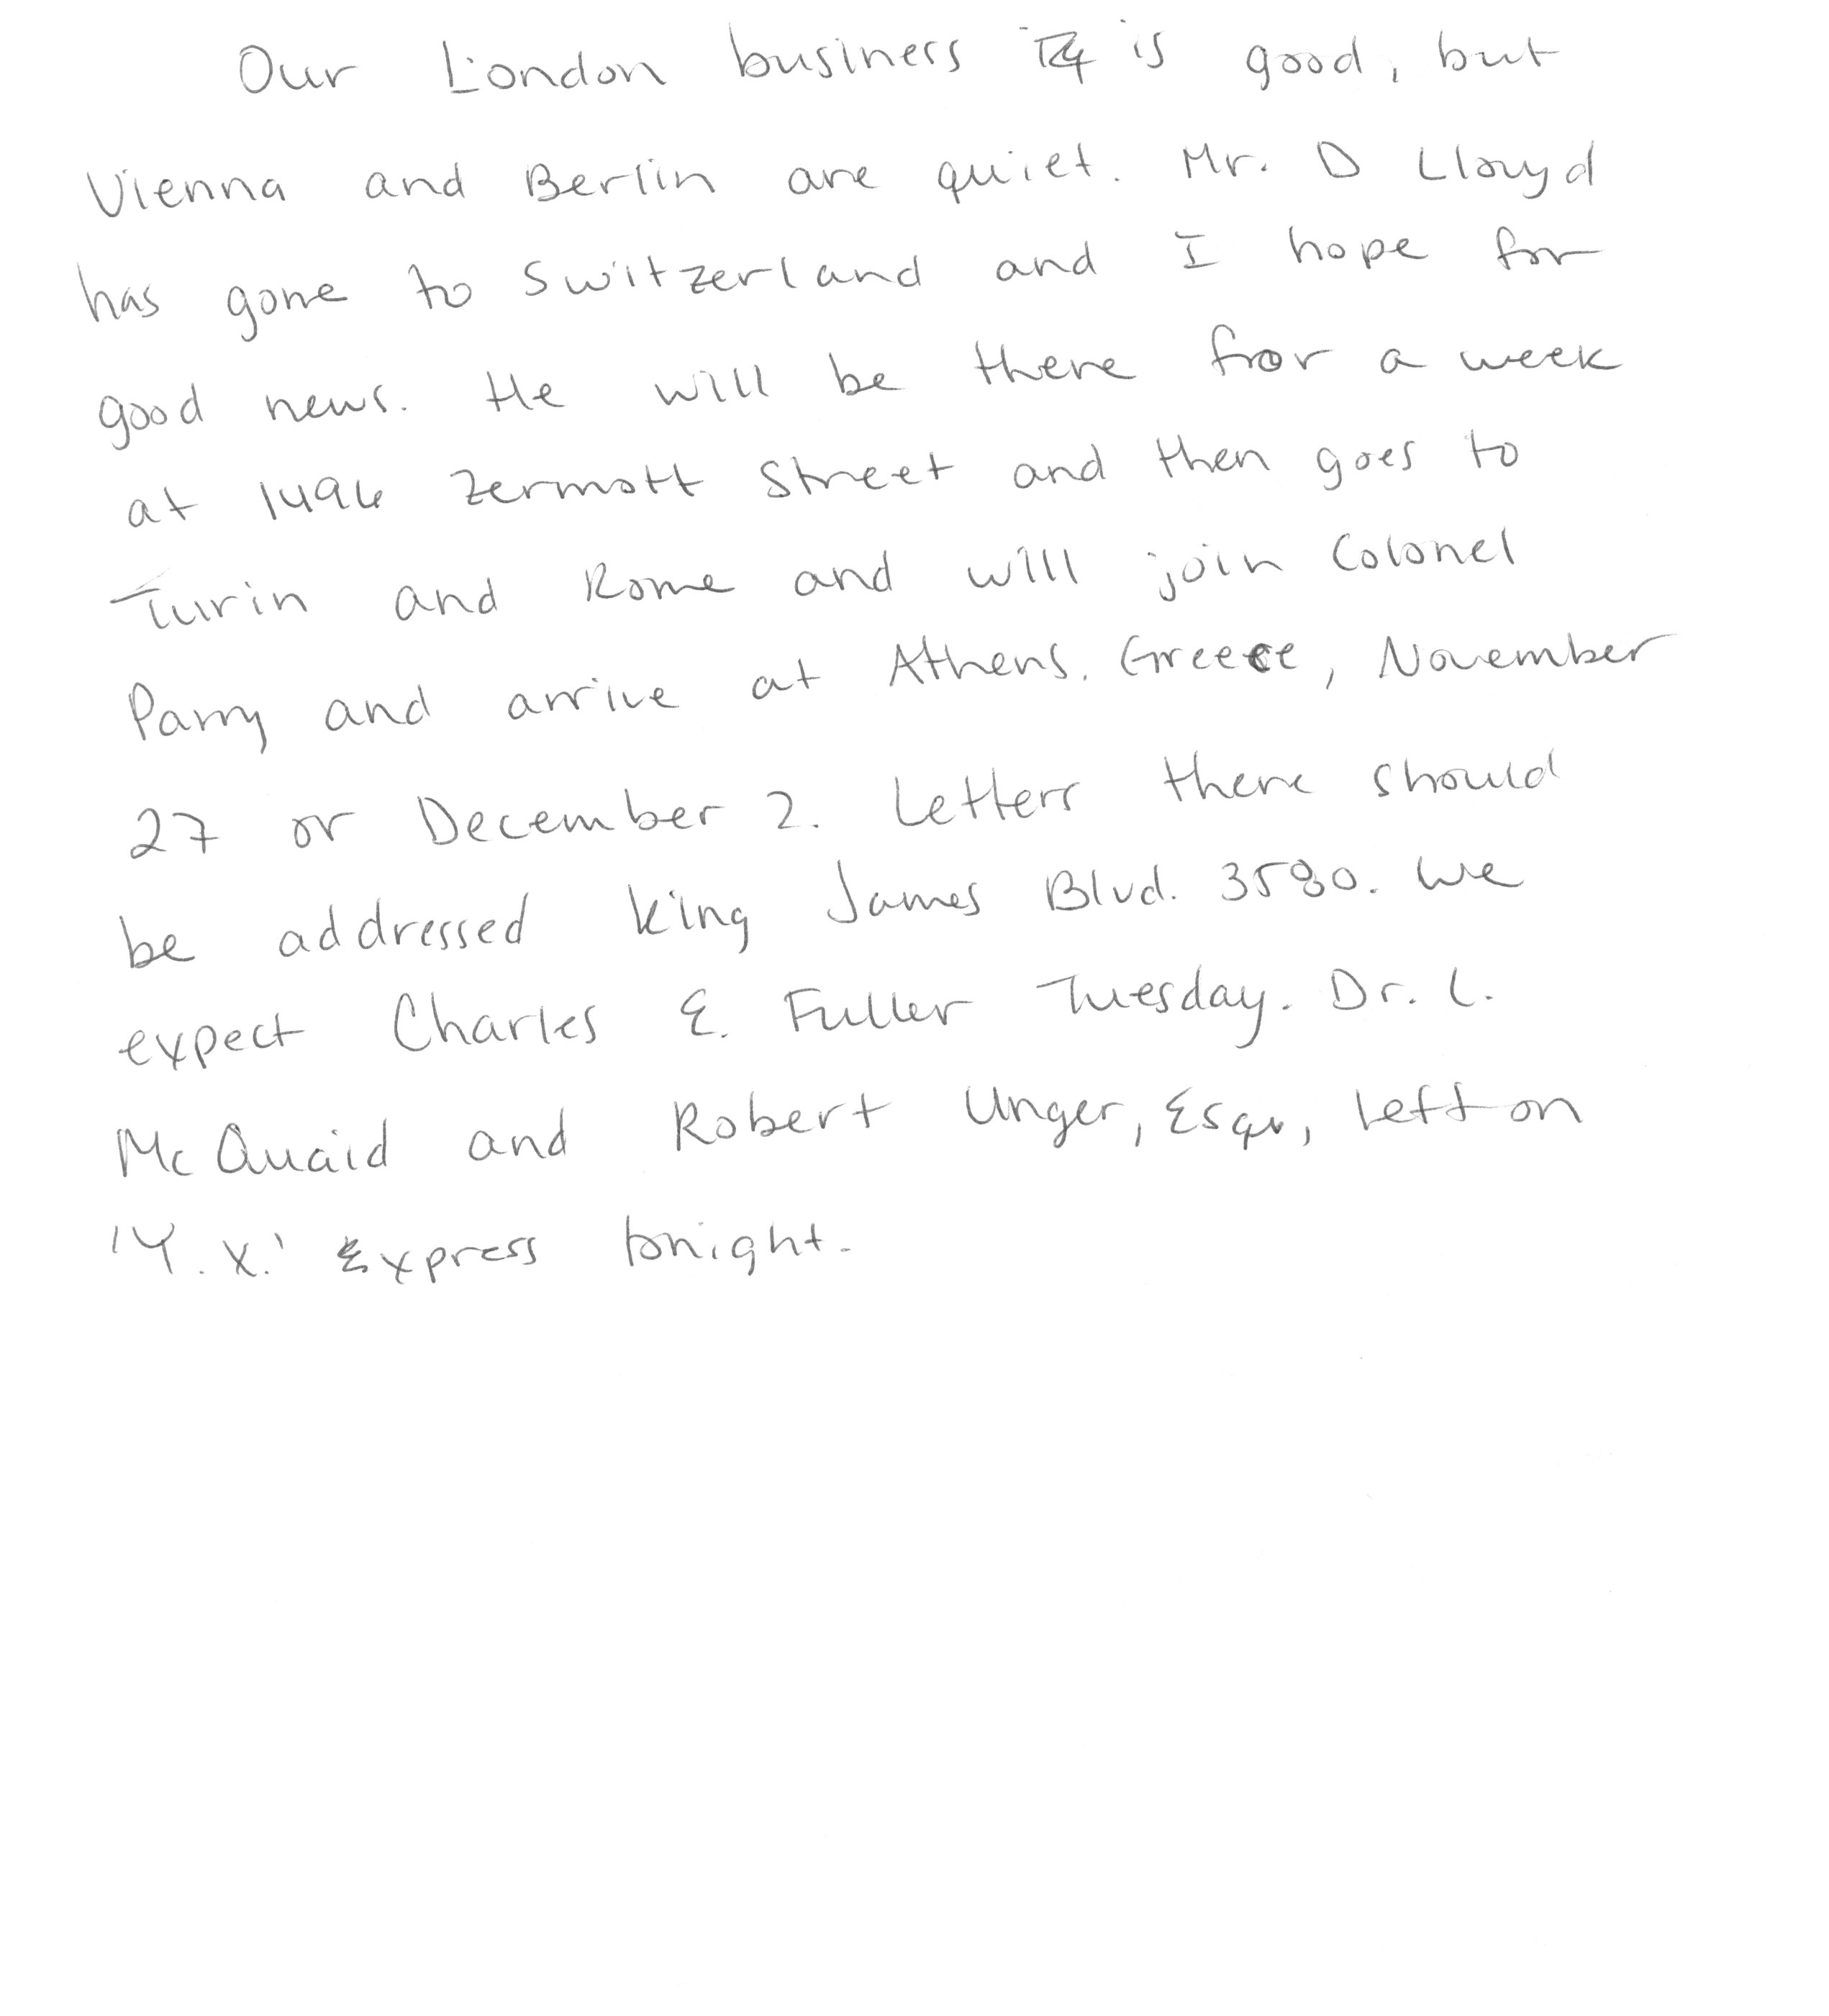 Our London business is good, but
Vienna and Berlin are quiet. Mr. D Lloyd
has gone to Switzerland and I hope for
good news. He will be there for a week
at 1496 Zermott Street and then goes to
Turin and Rome and will join Colonel
Parry and arrive at Athens. Greece, November
27 or December 2. Letters there should
be addressed King James Blvd. 3580. We
expect Charles E. Fuller Tuesday. Dr. L.
McQuaid and Robert Unger, Esqu, left on
'Y.X.' Express tonight.